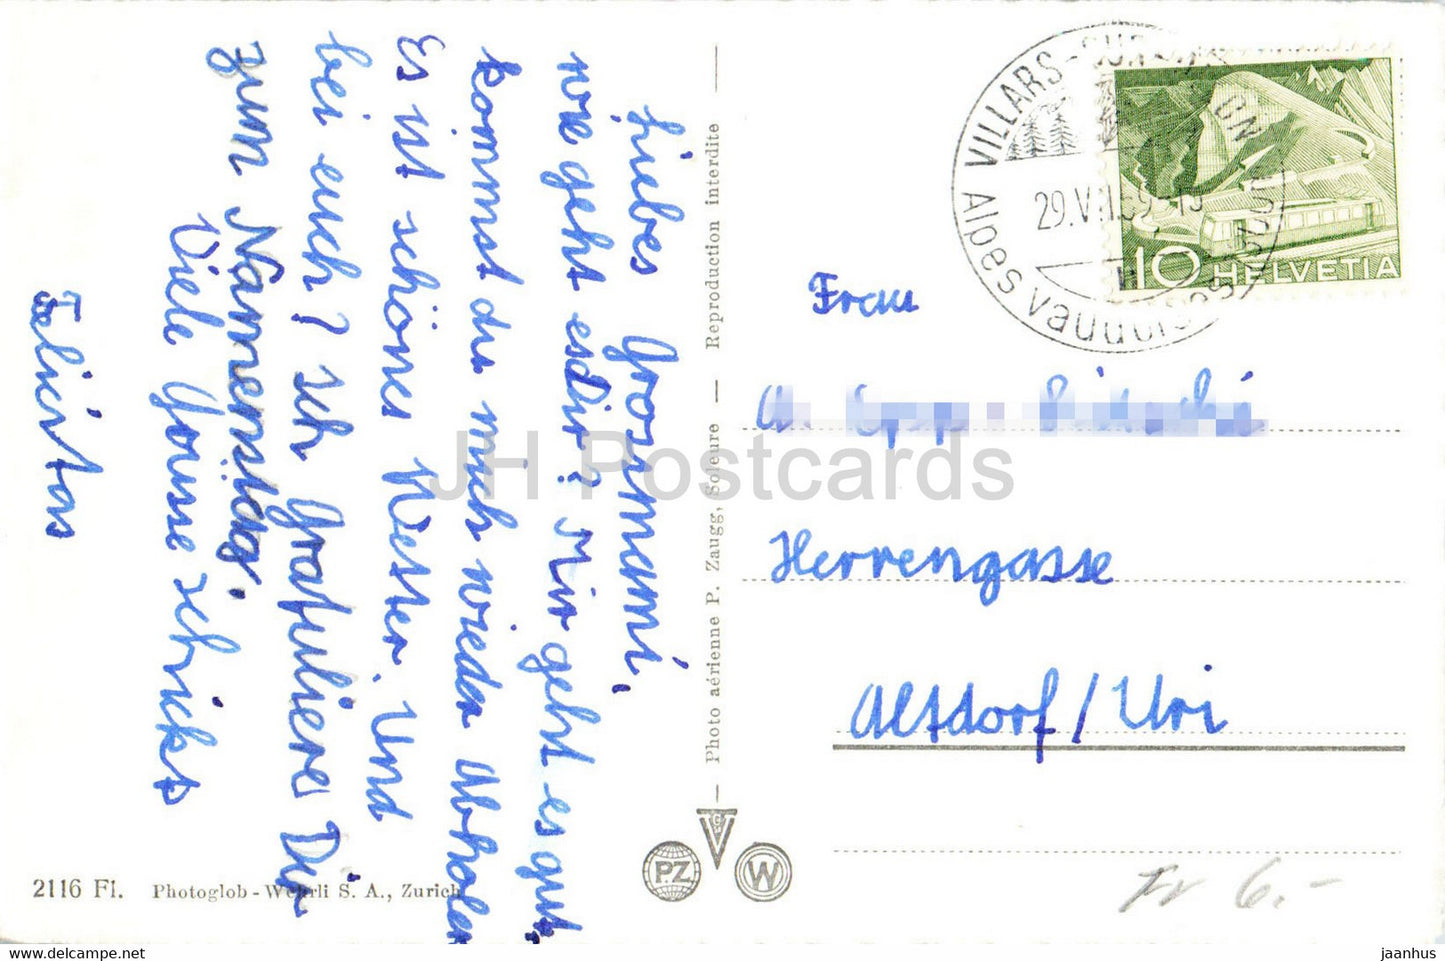 Liebes Grosmami,
wie geht es dir? Mir geht es gut.
kommst du mich wieder Abholen
Es ist schönes Wetter. Und
bei euch? Ich Gratuliere Dir
zum Namenstag.
Viele Grüsse schickt
Felicitas
Reproduction interdite
Photo aérienne P. Zaugg, Soleure
VILLARS-SUR-OLLON
29.V
Alpes vaudoises
10 HELVETIA
Frau
Herrengasse
Altdorf/Uri
PZ
W
2116 Fl. Photoglob-Wehrli S. A., Zurich
Fr 6.-
JH Postcards
hippostcard.com/store/jaanhus
jaanhus